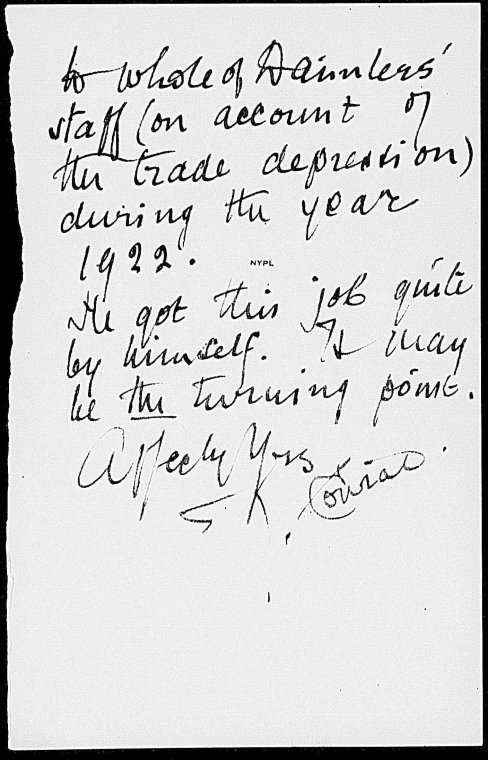 to whole of Daimlers'
staff (on account of
the trade depression)
during the year
1922.
NYPL
He got this job quite
by himself. It may
be the turning point.
Affecly Yrs
J. Conrad.